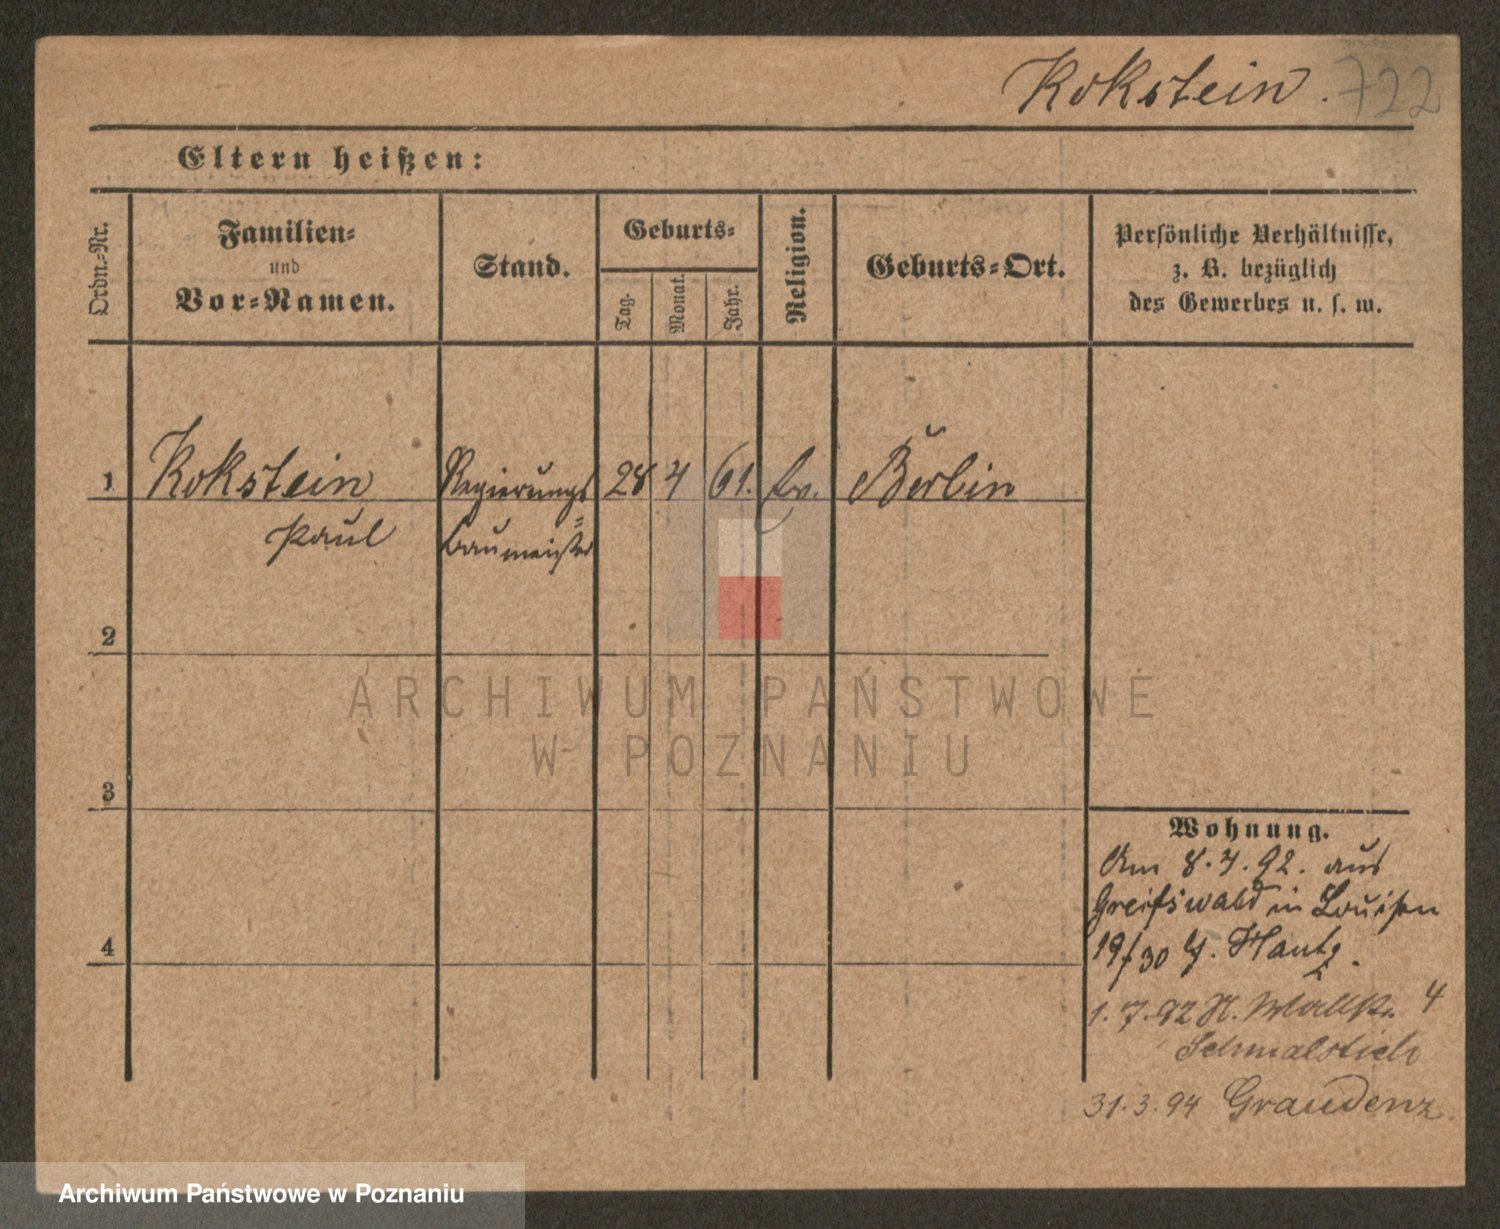 Kokstein. 722
Eltern heißen:
Ordn.-Nr.
Familien-
und
Vor-Namen.
Stand.
Geburts-
Tag.
Monat.
Jahr.
Religion.
Geburts-Ort.
Persönliche Verhältnisse,
z. B. bezüglich
des Gewerbes u. s. w.
1 Kokstein Regierungs 28 4 61. Ev. Berlin
Paul baumeister
2
3
4
Wohnung.
Am 8.4.92. aus
Greifswald in Louisen
19/30 b.
1.7.92 4
Schmalstich
31.3.94 Graudenz.
ARCHIWUM PAŃSTWOWE
W POZNANIU
Archiwum Państwowe w Poznaniu